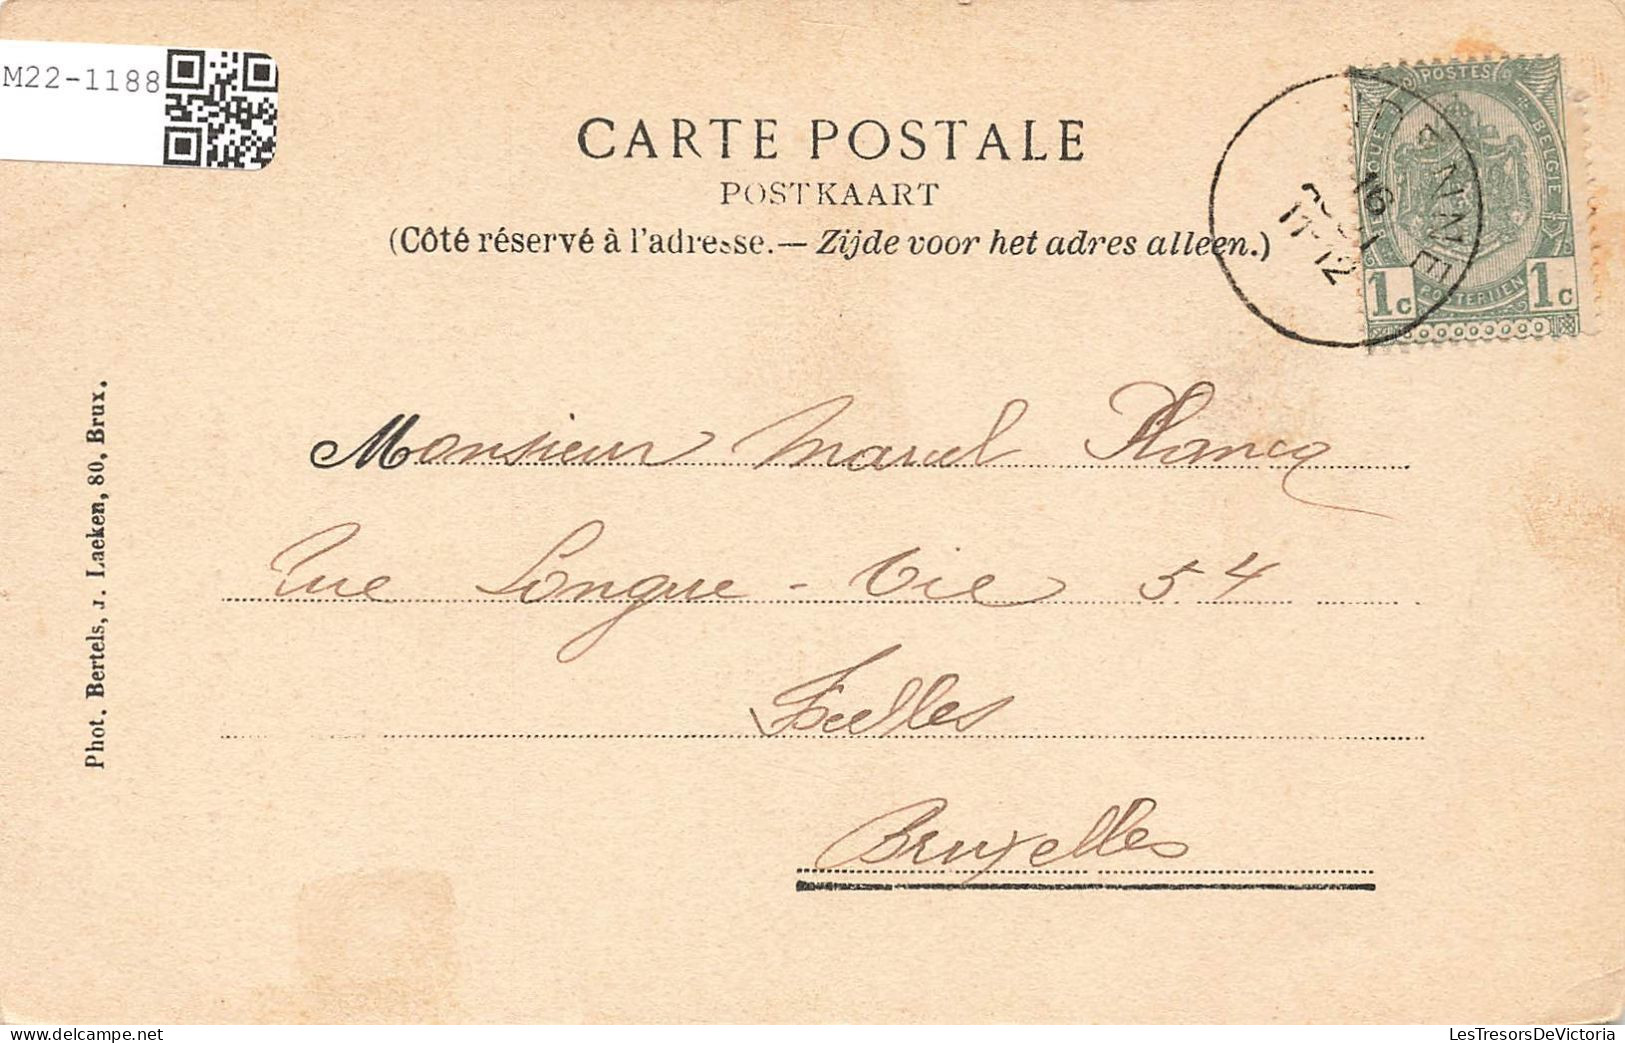 M22-1188
CARTE POSTALE
POSTKAART
(Côté réservé à l'adresse.— Zijde voor het adres alleen.)
POSTES
BELGIE
1c POSTERIJEN 1c
16
11-12
Monsieur Marcel Plancq
Rue Longue-Vie 54
Ixelles
Bruxelles
Phot. Bertels, J. Laeken, 80, Brux.
LesTresorsDeVictoria